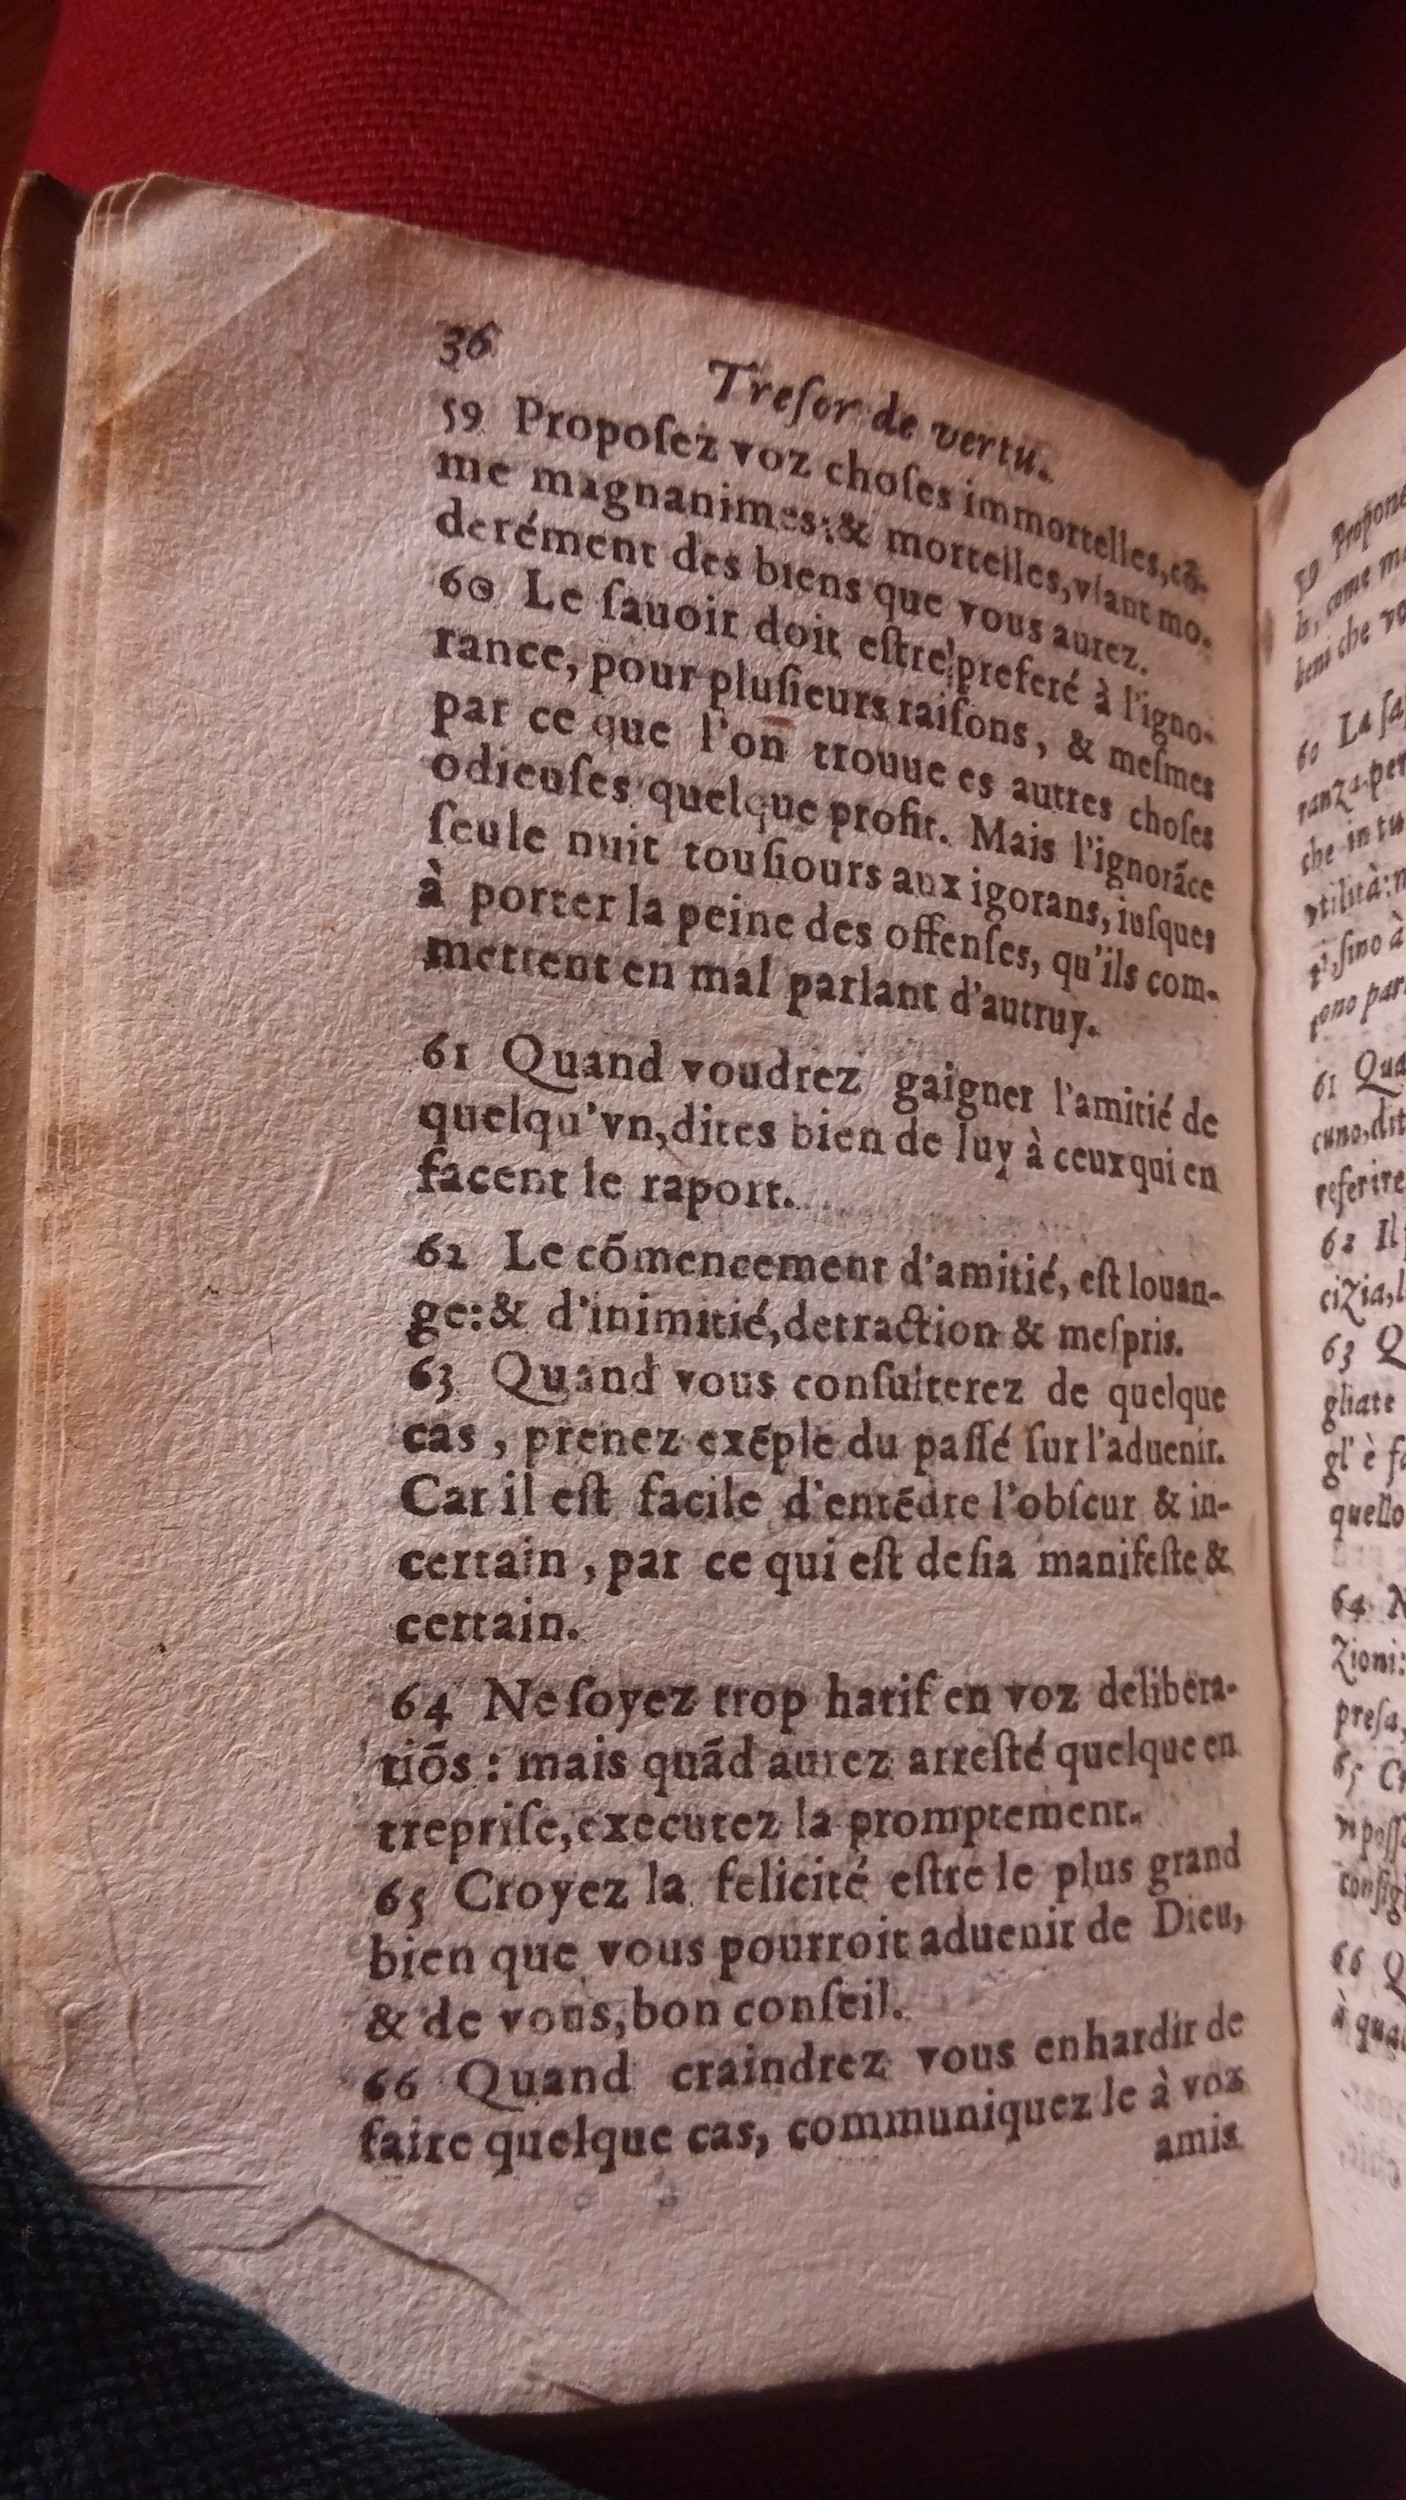 36
Treſor de vertu.
59 Propoſez voz choſes immortelles, cō-
me magnanimes: & mortelles, vſant mo-
derément des biens que vous aurez.
60 Le ſauoir doit eſtre preferé à l'igno-
rance, pour pluſieurs raiſons, & meſmes
par ce que l'on trouue es autres choſes
odieuſes quelque profit. Mais l'ignorāce
ſeule nuit touſiours aux igorans, iuſques
à porter la peine des offenſes, qu'ils com-
mettent en mal parlant d'autruy.
61 Quand voudrez gaigner l'amitié de
quelqu'vn, dites bien de luy à ceux qui en
facent le raport.
62 Le cōmencement d'amitié, eſt louan-
ge: & d'inimitié, detraction & meſpris.
63 Quand vous conſulterez de quelque
cas, prenez exēple du paſſé ſur l'aduenir.
Car il eſt facile d'entēdre l'obſcur & in-
certain, par ce qui eſt deſia manifeſte &
certain.
64 Ne ſoyez trop hatif en voz delibera-
tiōs: mais quād aurez arreſté quelque en
trepriſe, executez la promptement.
65 Croyez la felicité eſtre le plus grand
bien que vous pourroit aduenir de Dieu,
& de vous, bon conſeil.
66 Quand craindrez vous enhardir de
faire quelque cas, communiquez le à voz
amis
59
come
che vo
60 La
ranza, per
che in tu
vtilità:
ſino à
61
cuno,
referire
62 Il
cizia,
63 Q
gliate
gl' è
quello
64
Zioni:
preſa,
65
66 Q
à